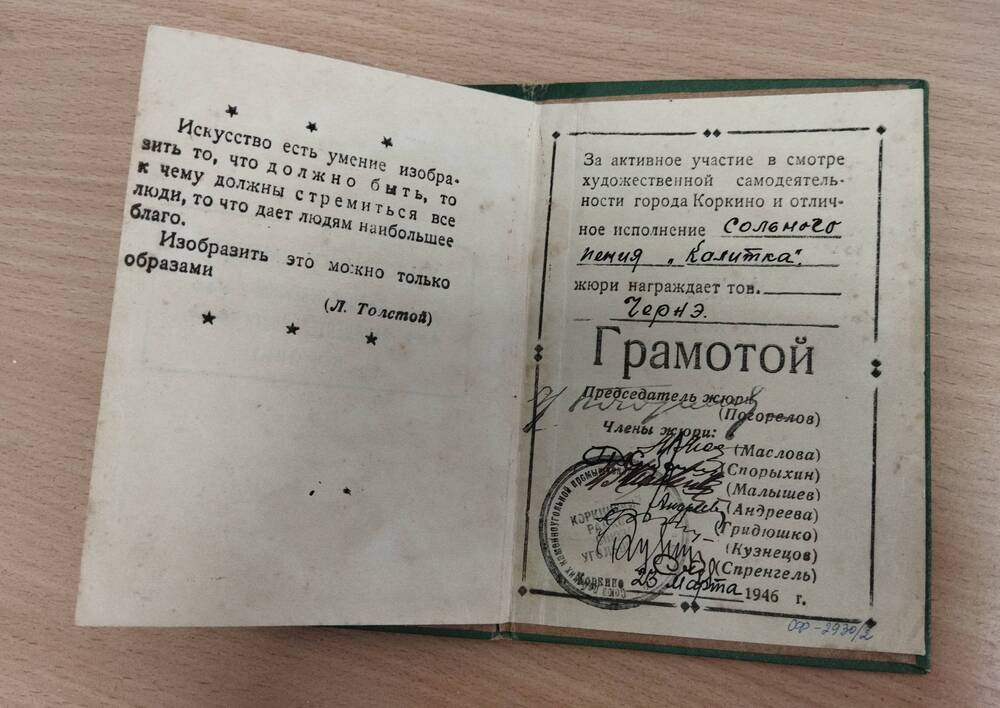 Искусство есть умение изобра-
зить то, что должно быть, то
к чему должны стремиться все
люди, то что дает людям наибольшее
благо.
Изобразить это можно только
образами
(Л. Толстой)
За активное участие в смотре
художественной самодеятель-
ности города Коркино и отлич-
ное исполнение сольного
пения „Калитка".
жюри награждает тов.
Чернэ.
Грамотой
Председатель жюри
(Погорелов)
Члены жюри:
(Маслова)
(Спорыхин)
(Малышев)
(Андреева)
(Гридюшко)
(Кузнецов)
(Спренгель)
Коркино 23 марта 1946 г.
ОФ-2930/2